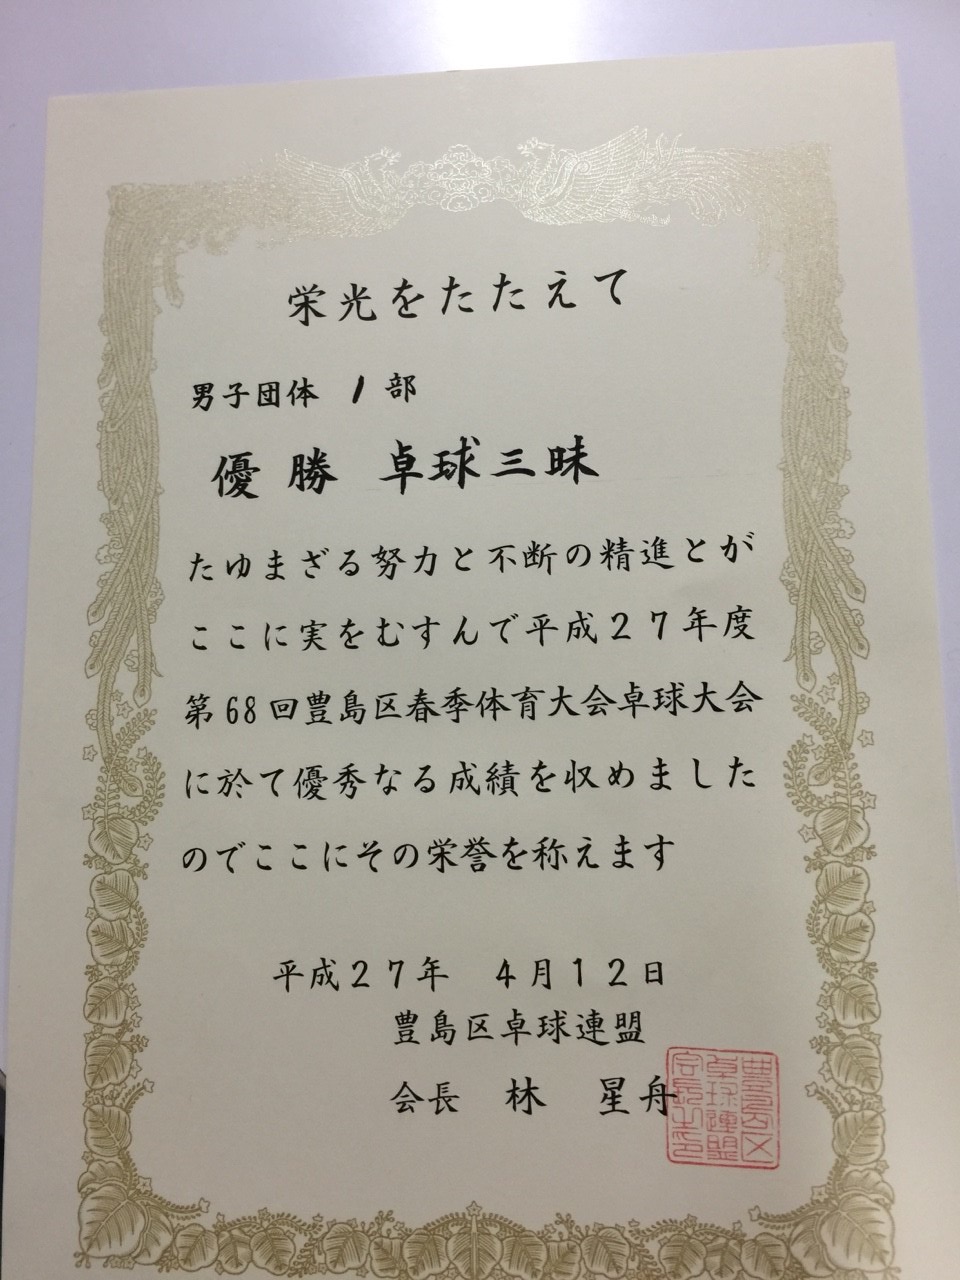 栄光をたたえて
男子団体 1部
優勝 卓球三昧
たゆまざる努力と不断の精進とが
ここに実をむすんで平成27年度
第68回豊島区春季体育大会卓球大会
に於て優秀なる成績を収めました
のでここにその栄誉を称えます
平成27年 4月12日
豊島区卓球連盟
会長 林 星舟
豊島区
卓球連盟
会長之印